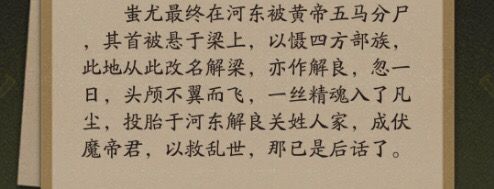 蚩尤最终在河东被黄帝五马分尸
，其首被悬于梁上，以慑四方部族，
此地从此改名解梁，亦作解良，忽一
日，头颅不翼而飞，一丝精魂入了凡
尘，投胎于河东解良关姓人家，成伏
魔帝君，以救乱世，那已是后话了。